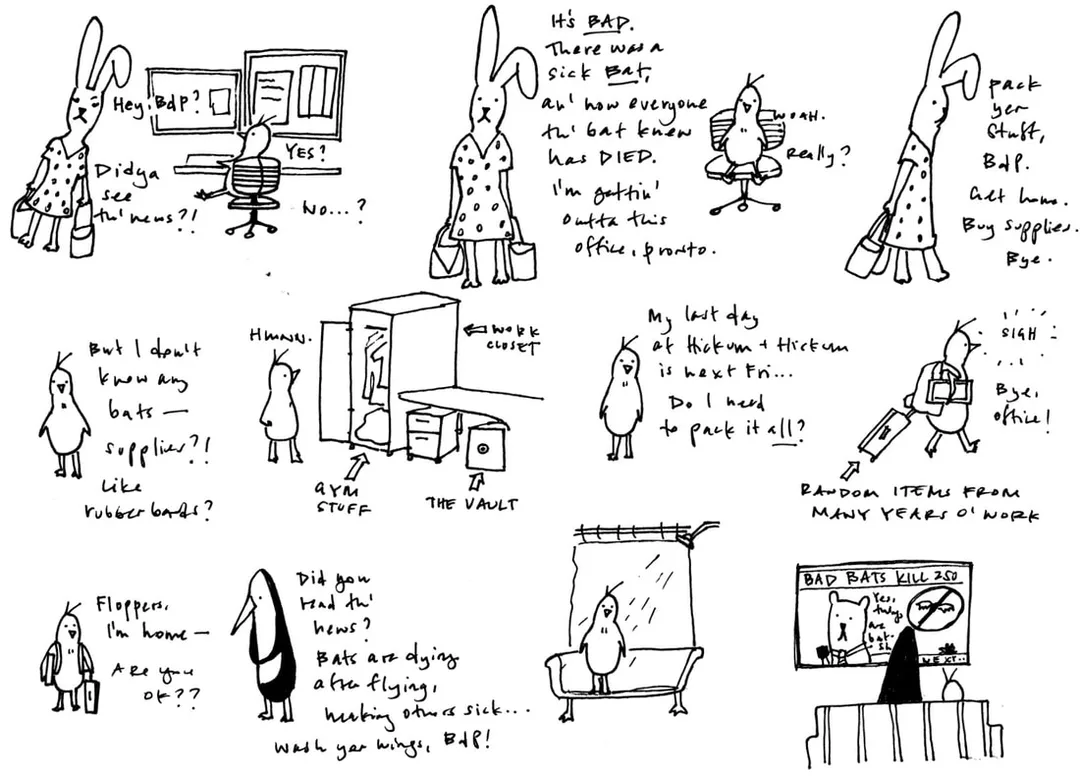 Hey, BdP?
Didya
see
th' news?!
YES?
NO...?
It's BAD.
There was a
sick Bat,
an' now everyone
th' bat knew
has DIED.
I'm gettin'
outta this
office, pronto.
WOAH.
Really?
pack
yer
stuff,
BdP.
Get home.
Buy supplies.
Bye.
But I don't
know any
bats —
supplies?!
Like
rubber bands?
HMNN.
WORK
CLOSET
GYM
STUFF
THE VAULT
My last day
at Hickum + Hickum
is next Fri...
Do I need
to pack it all?
SIGH
Bye,
office!
RANDOM ITEMS FROM
MANY YEARS O' WORK
Floppers,
I'm home —
Are you
OK??
Did you
read th'
news?
Bats are dying
after flying,
making others sick...
wash yer wings, BdP!
BAD BATS KILL 250
Yes,
they
are
bat-
sh
NEXT..